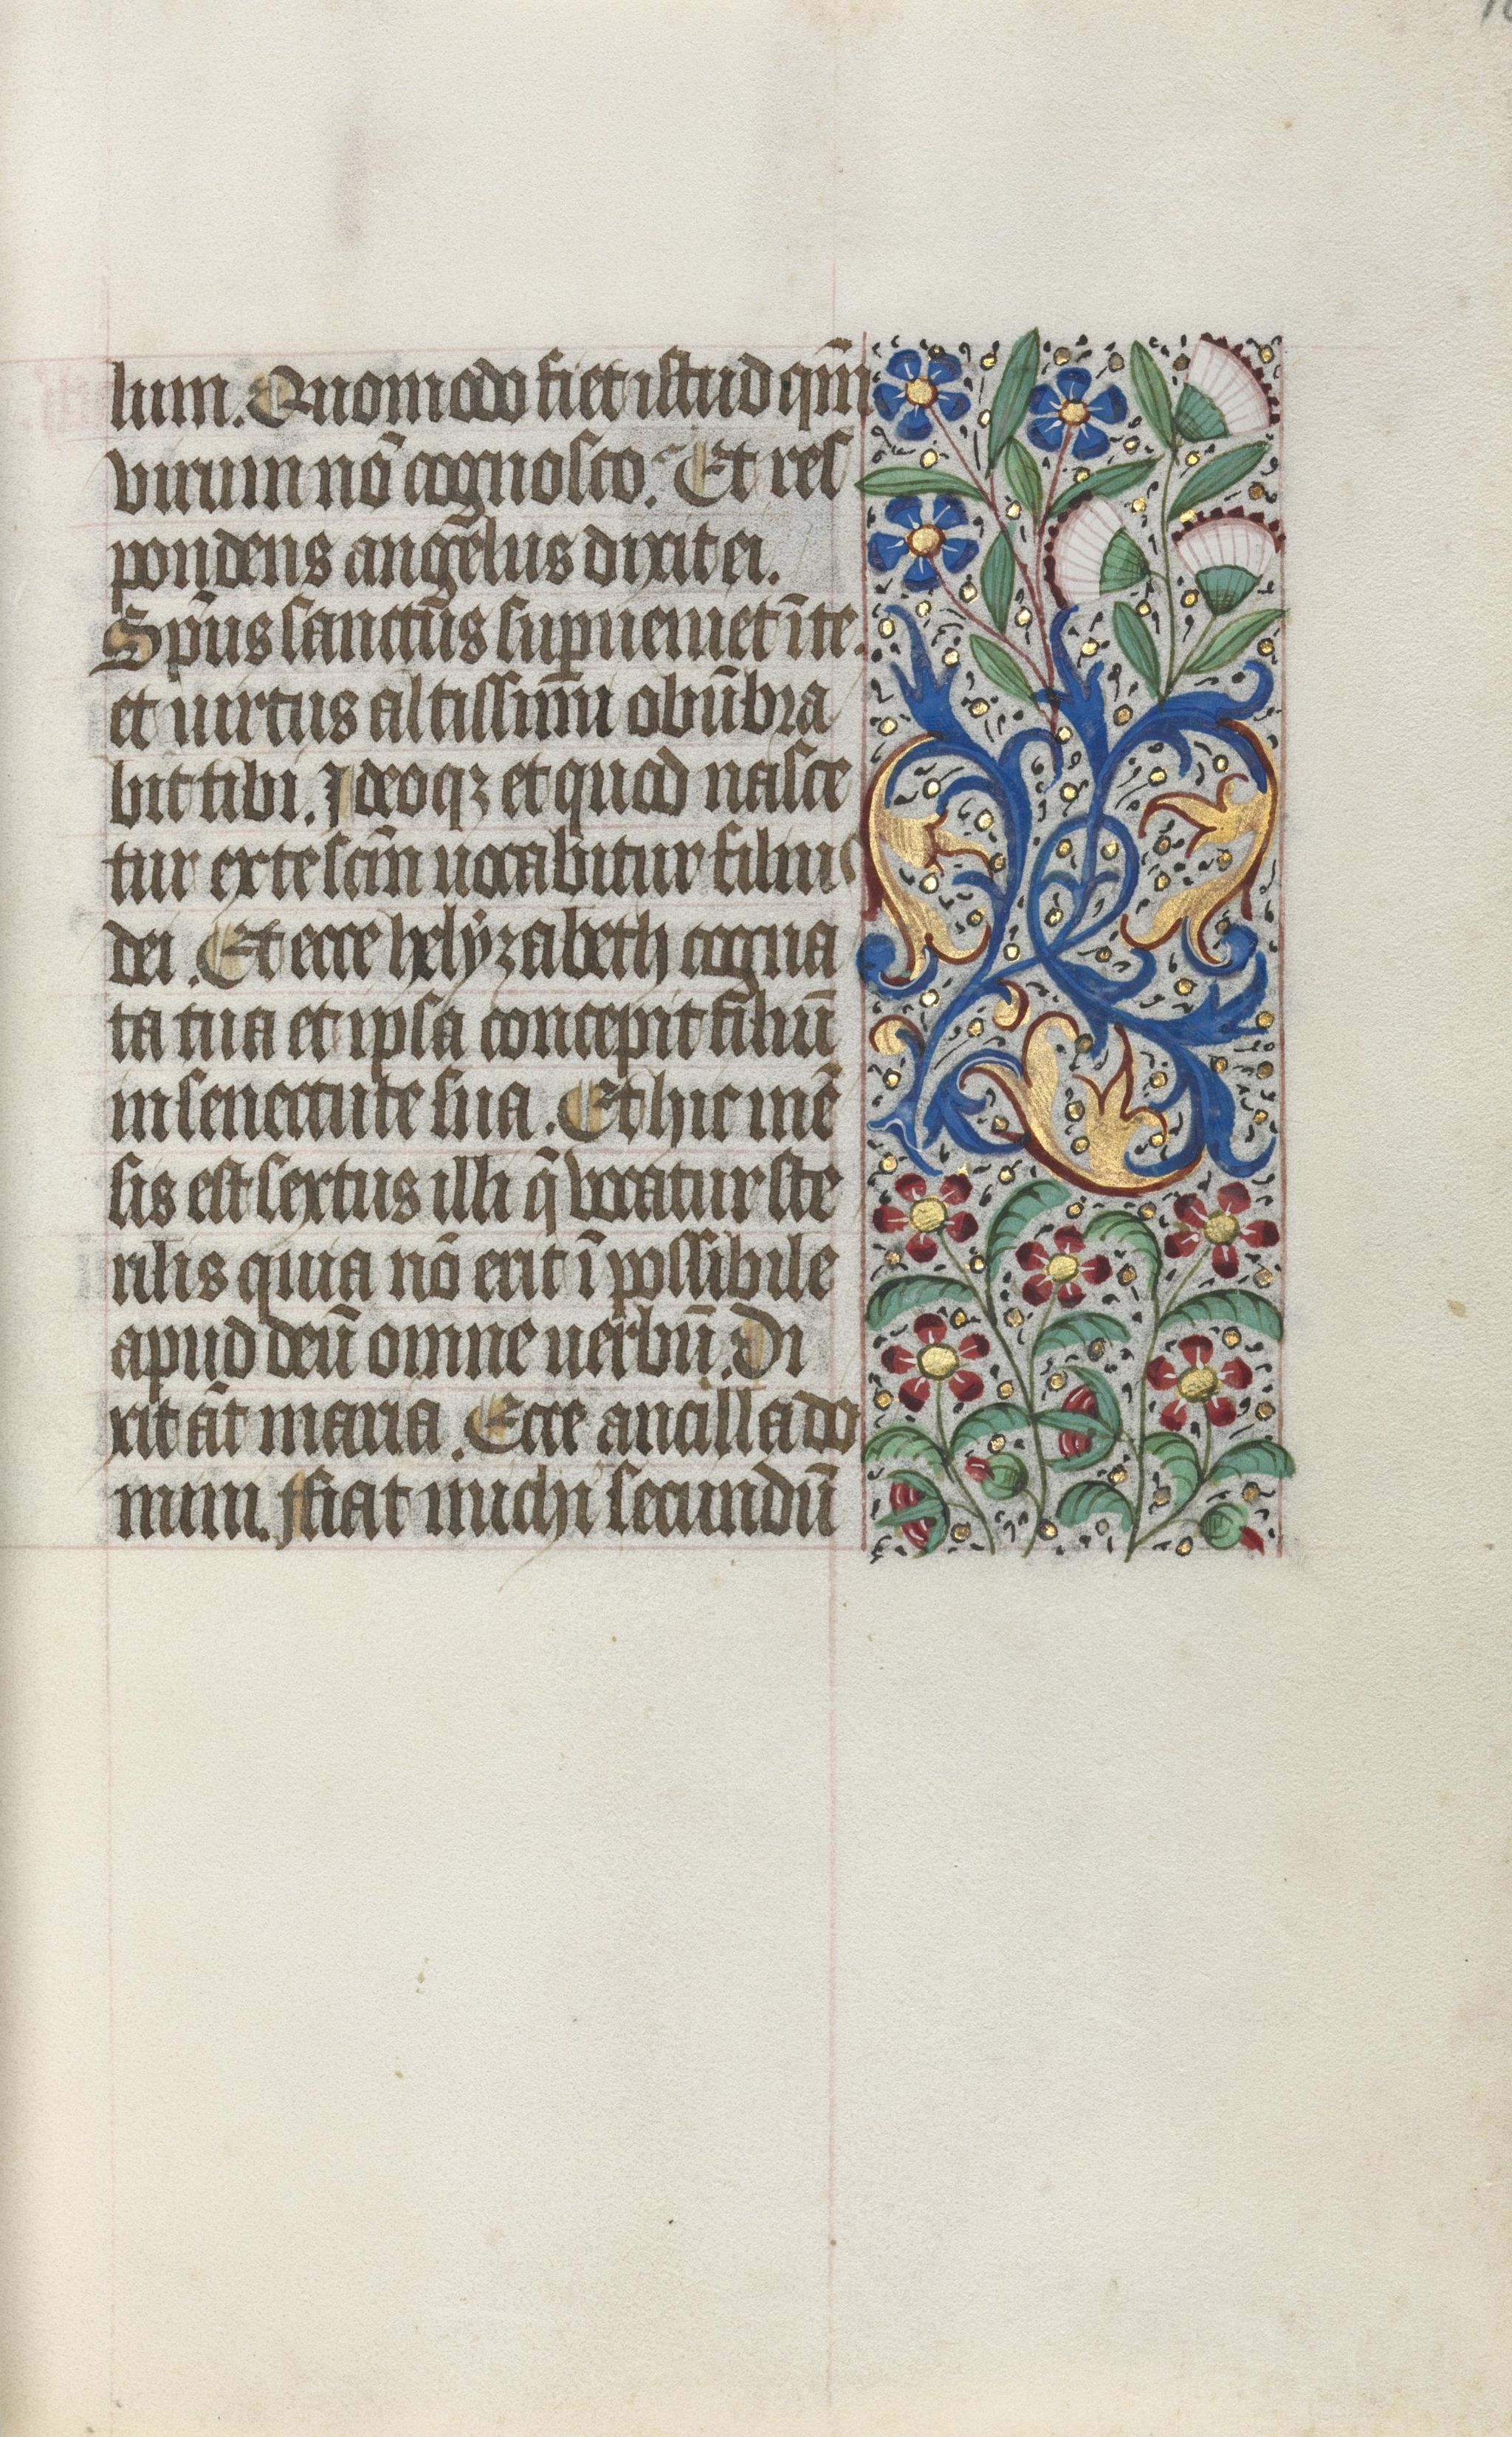 lum. Quomodo fiet istud qm̄
virum nō cognosco. Et res
pondens angelus dixit ei.
Sp̄us sanctus sup̄ueniet ī te.
et uirtus altissimi obūbra
bit tibi. Ideoqꝫ et quod nasce
tur ex te scm̄ uocabitur filius
dei. Et ecce helyzabeth cogna
ta tua et ipsa concepit filiū
in senectute sua. Et hic mē
sis est sextus illi q̄ vocatur ste
rilis quia nō erit ī possibile
apud deū omne uerbū. Di
xit āt maria. Ecce ancilla do
mini. fiat michi secundū